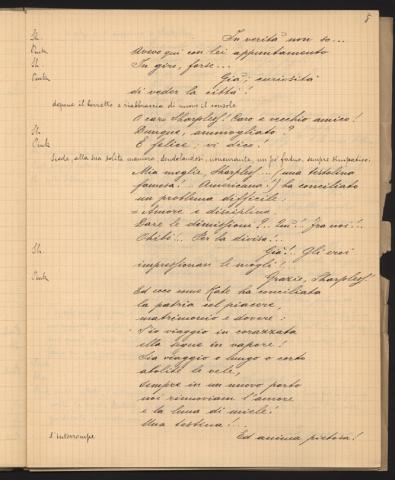 8
Sh. In verità non so...
Pink. Avevo qui con lei appuntamento
Sh. In giro, forse...
Pink. Già; curiosità
di veder la città!
depone il berretto e riabbraccia di nuovo il console
O caro Sharpless! Caro e vecchio amico!
Sh. Dunque, ammogliato?
Pink. E felice, vi dico!
Siede alla sua solita maniera, dondolandosi, noncurante, un po' fatuo, sempre simpatico.
Mia moglie, Sharpless... (una testolina
famosa! Americana!) ha conciliato
un problema difficile.
= Amore e disciplina.
Dare le dimissioni?.. Fra noi!..
Ohibò!... Per la divisa!..
Sh. Già!. Gli eroi
impressionan le mogli!
Pink. Grazie, Sharpless!
Ed ecco come Kate ha conciliata
la patria col piacere,
matrimonio e dovere:
S'io viaggio in corazzata
ella segue in vapore!
Sia viaggio o lungo o corto
abolite le vele,
sempre in un nuovo porto
noi rinnoviam l'amore
e la luna di miele!
Una testina!...
s'interrompe Ed anima pietosa!